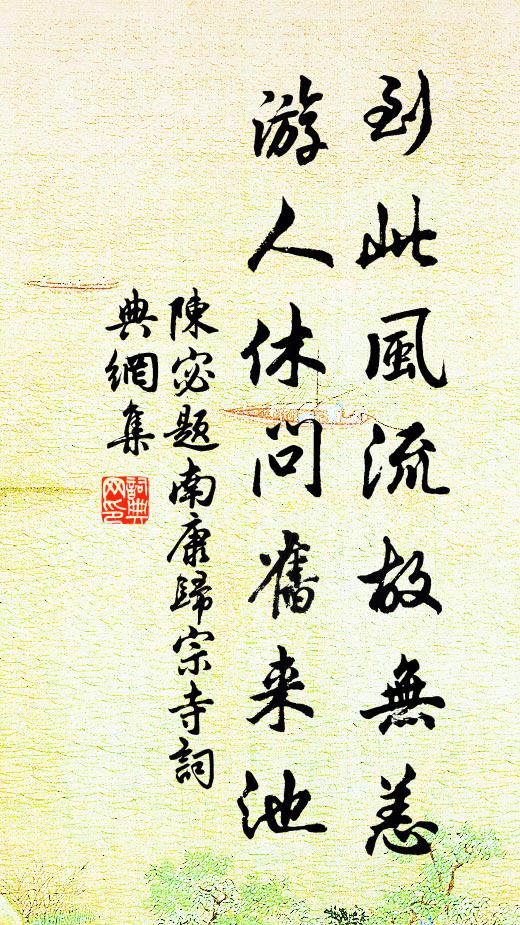 到此風流故無恙
游人休問舊来池
陳宓題南康歸宗寺詞
典網集
詞典
网印